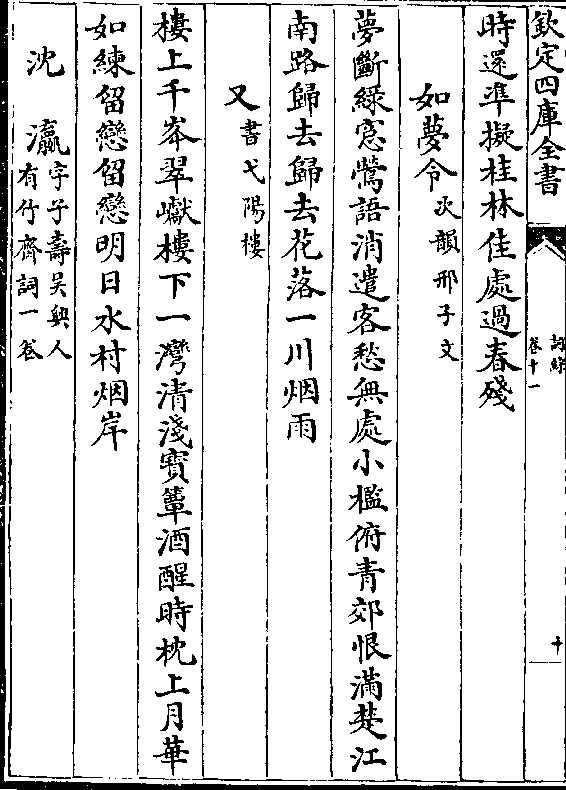 欽定四庫全書
詞綜
卷十一
十
時還準擬桂林佳處過春殘
如夢令次韻邢子文
夢斷綠窓鶯語消遣客愁無處小檻俯青郊恨滿楚江
南路歸去歸去花落一川烟雨
又書弋陽樓
樓上千峯翠巘樓下一灣清淺寶簟酒醒時枕上月華
如練留戀留戀明日水村烟岸
沈瀛字子壽吳興人
有竹齋詞一卷